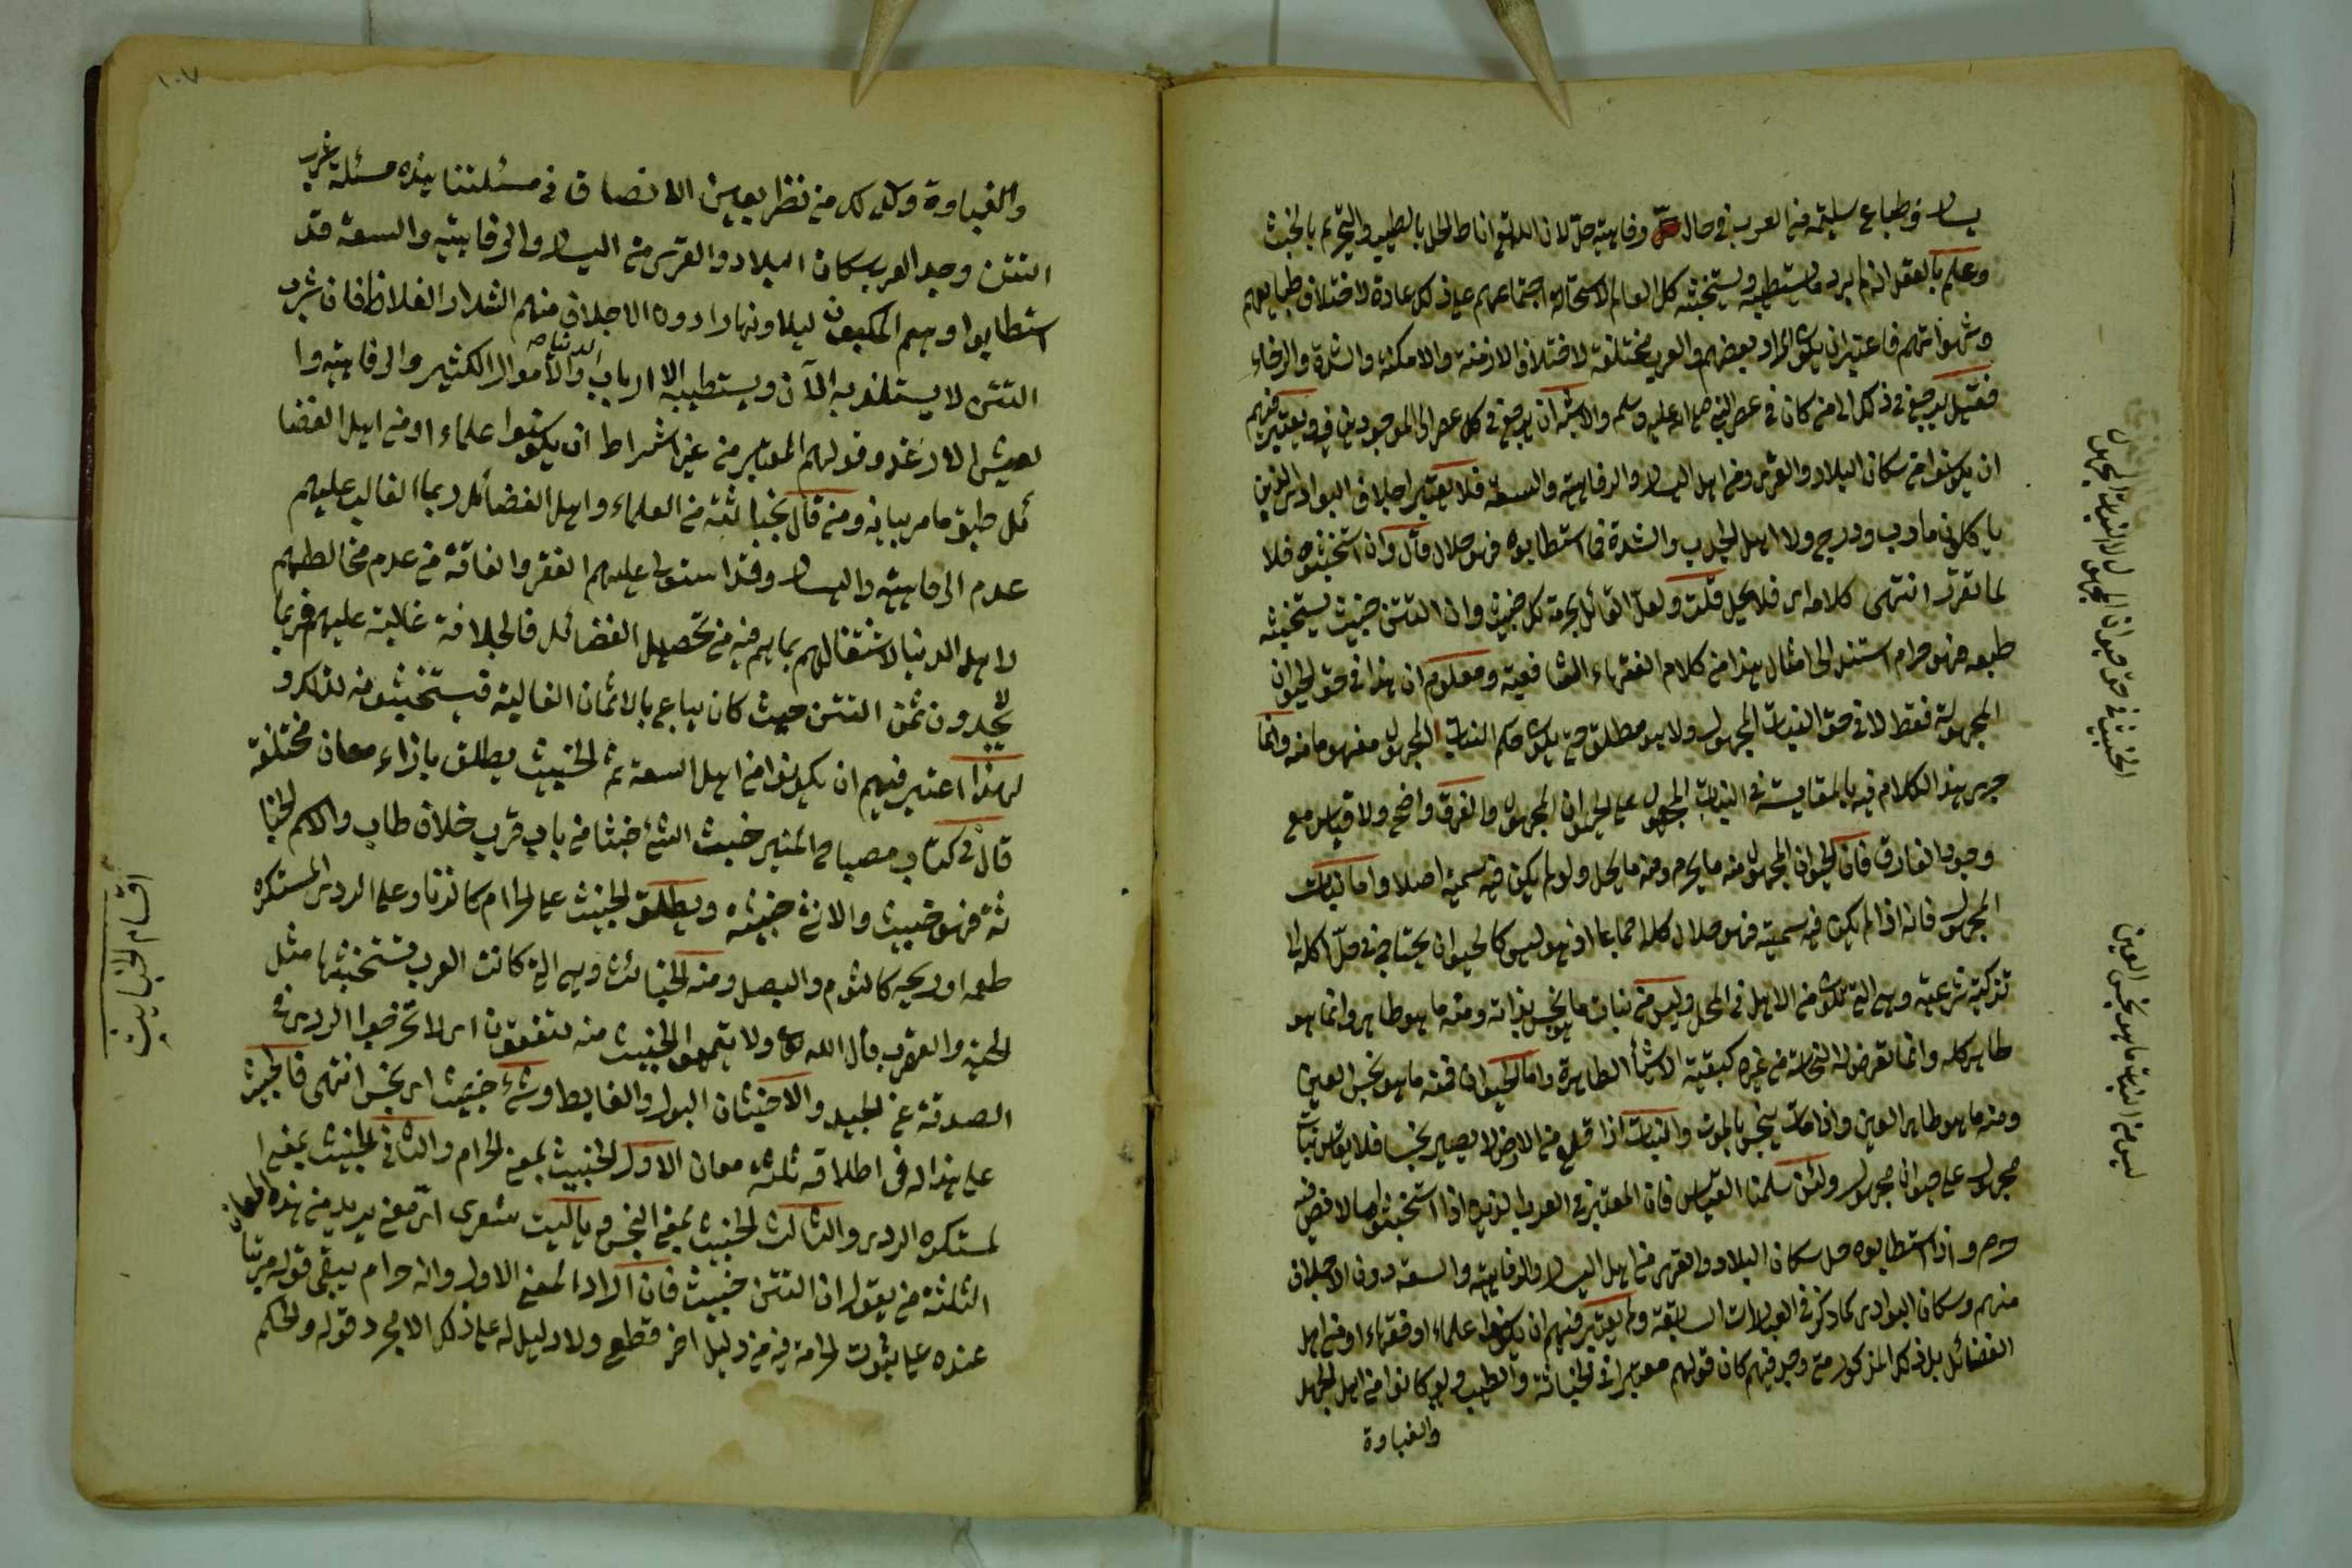 يسار وطباع سليمة من العرب في حال رفاهية حل لان الله تعالى اناط الحل بالطيب والتحريم بالخبيث
وعلم بالعقل انه لم يرد ما يستطيبه ويستخبثه كل العالم لاستحالة اجتماعهم على ذلك عادة لاختلاف طبايعهم
وشهواتهم فاعتبر ان يكون المراد بعضهم والعرب مختلفة لاختلاف الازمنة والامكنة والشدة والرخاء
فقيل يرجع في ذلك الى من كان في عصر النبي صلى الله عليه وسلم والاشبه ان يرجع في كل عصر الى الموجودين فيه ويعتبر فيهم
ان يكونوا من سكان البلاد والقرى ومن اهل اليسار والرفاهية والسعة فلا يعتبر اجلاف البوادى الذين
ياكلون ما دب ودرج ولا اهل الجدب والشدة فما استطابوه فهو حلال قال وان استخبثوه فلا
لما تقرر انتهى كلامه اى فلا يحل قلت ولعل القائل بحرمة كل خبيث وان التتن خبيث يستخبثه
طبعه فهو حرام استند الى امثال هذا من كلام الفقهاء الشافعية ومعلوم ان هذا في حق الحيوان
المجهول فقط لا في حق النبات المجهول ولا هو مطلق حتى يكون حكم النبات المجهول مفهوما منه وانما
جرى هذا الكلام فيه بالمقايسة في النبات المجهول على الحيوان المجهول والفرق واضح ولا قياس مع
وجود الفارق فان الحيوان المجهول منه ما يحرم ومنه ما يحل ولو لم يكن فيه سمية اصلا واما نبات
المجهول فانه اذا لم يكن فيه سمية فهو حلال كله اجماعا اذ هو ليس كالحيوان يحتاج في حل اكله الى
تذكية شرعية وهي التي تكون من الاهل في المحل وليس من نبات ما هو نجس بذاته ومنه ما هو طاهر وانما هو
طاهر كله وانما تعرض له النجاسة من غيره كبقية الاشيأ الطاهرة واما الحيوان فمنه ما هو نجس العين
ومنه ما هو طاهر العين واذا مات ينجس بالموت والنبات اذا قلع من الارض لا يصير نجسا فلا يقاس نبات
مجهول على حيوان مجهول ولئن سلمنا القياس فان المعتبر في العرب الذين اذا استخبثوا ما لا نص فيه
حرم واذا استطابوه حل سكان البلاد والقرى من اهل اليسار والرفاهية والسعة دون الاجلاف
منهم وسكان البوادى كما ذكر في العبارات السابقة ولم يعتبر فيهم ان يكونوا علماء او فقهاء او من اهل
الفضائل بل ذلك المذكور متى وجد فيهم كان قولهم معتبرا في الخباثة والطيب ولو كانوا من اهل الجهل
والغباوة
الخبيث في حق حيوان المجهول لا النبات المجهول
ليس من النبات ما هو نجس العين
١٠٧
والغباوة وكذلك من نظر بعين الانصاف في مسئلتنا هذه مسئلة شرب
التتن وجد العرب سكان البلاد والقرى من اليسار والرفاهية والسعة قد
استطابوا وهم المكبون ليلا ونهارا دون الاجلاف منهم الشداد الغلاظ فان شرب
التتن لا يستلذ به الآن ويستطيبه الا ارباب الدنيا صح والاموال الكثير والرفاهية وا
لعيش الارغد وقولهم المعتبر من غير اشتراط ان يكونوا علماء او من اهل الفضا
ئل طبق ما مر بيانه ومن قال بخباثته من العلماء واهل الفضائل ربما الغالب عليهم
عدم الرفاهية واليسار وقد استولى عليهم الفقر والفاقة من عدم مخالطتهم
لاهل الدنيا لاشتغالهم بما هم فيه من تحصيل الفضائل فالجلافة غالبة عليهم فربما
لا يجدون ثمن التتن حيث كان يباع بالاثمان الغالية فيستخبثونه لذلك و
لهذا اعتبر فيهم ان يكونوا من اهل السعة ثم الخبيث يطلق بازاء معان مختلفة
قال في كتاب مصباح المنير خبث الشئ خبثا من باب قرب خلاف طاب والاسم الخبا
ثة فهو خبيث والانثى خبيثة ويطلق الخبيث على الحرام كالزنا وعلى الردى المستكره
طعمه او ريحه كالثوم والبصل ومنه الخبائث وهي التي كانت العرب تستخبثها مثل
الحية والعقرب قال الله تعالى ولا تيمموا الخبيث منه تنفقون اى لا تخرجوا الردى في
الصدقة عن الجيد والاخبثان البول والغايط وشئ خبيث اى نجس انتهى فالخبيث
على هذا له فى اطلاقه ثلثة معان الاول الخبيث بمعنى الحرام والثاني الخبيث بمعنى ا
لمستكره الردى والثالث الخبيث بمعنى النجس فيا ليت شعرى اى معنى يريد من هذه المعان
الثلثة من يقول ان التتن خبيث فان اراد المعنى الاول وانه حرام يبقى قوله مرتبا
عنده على ثبوت الحرامة فيه من دليل اخر قطع ولا دليل له على ذلك الا مجرد قوله والحكم
اقسام الخبايث